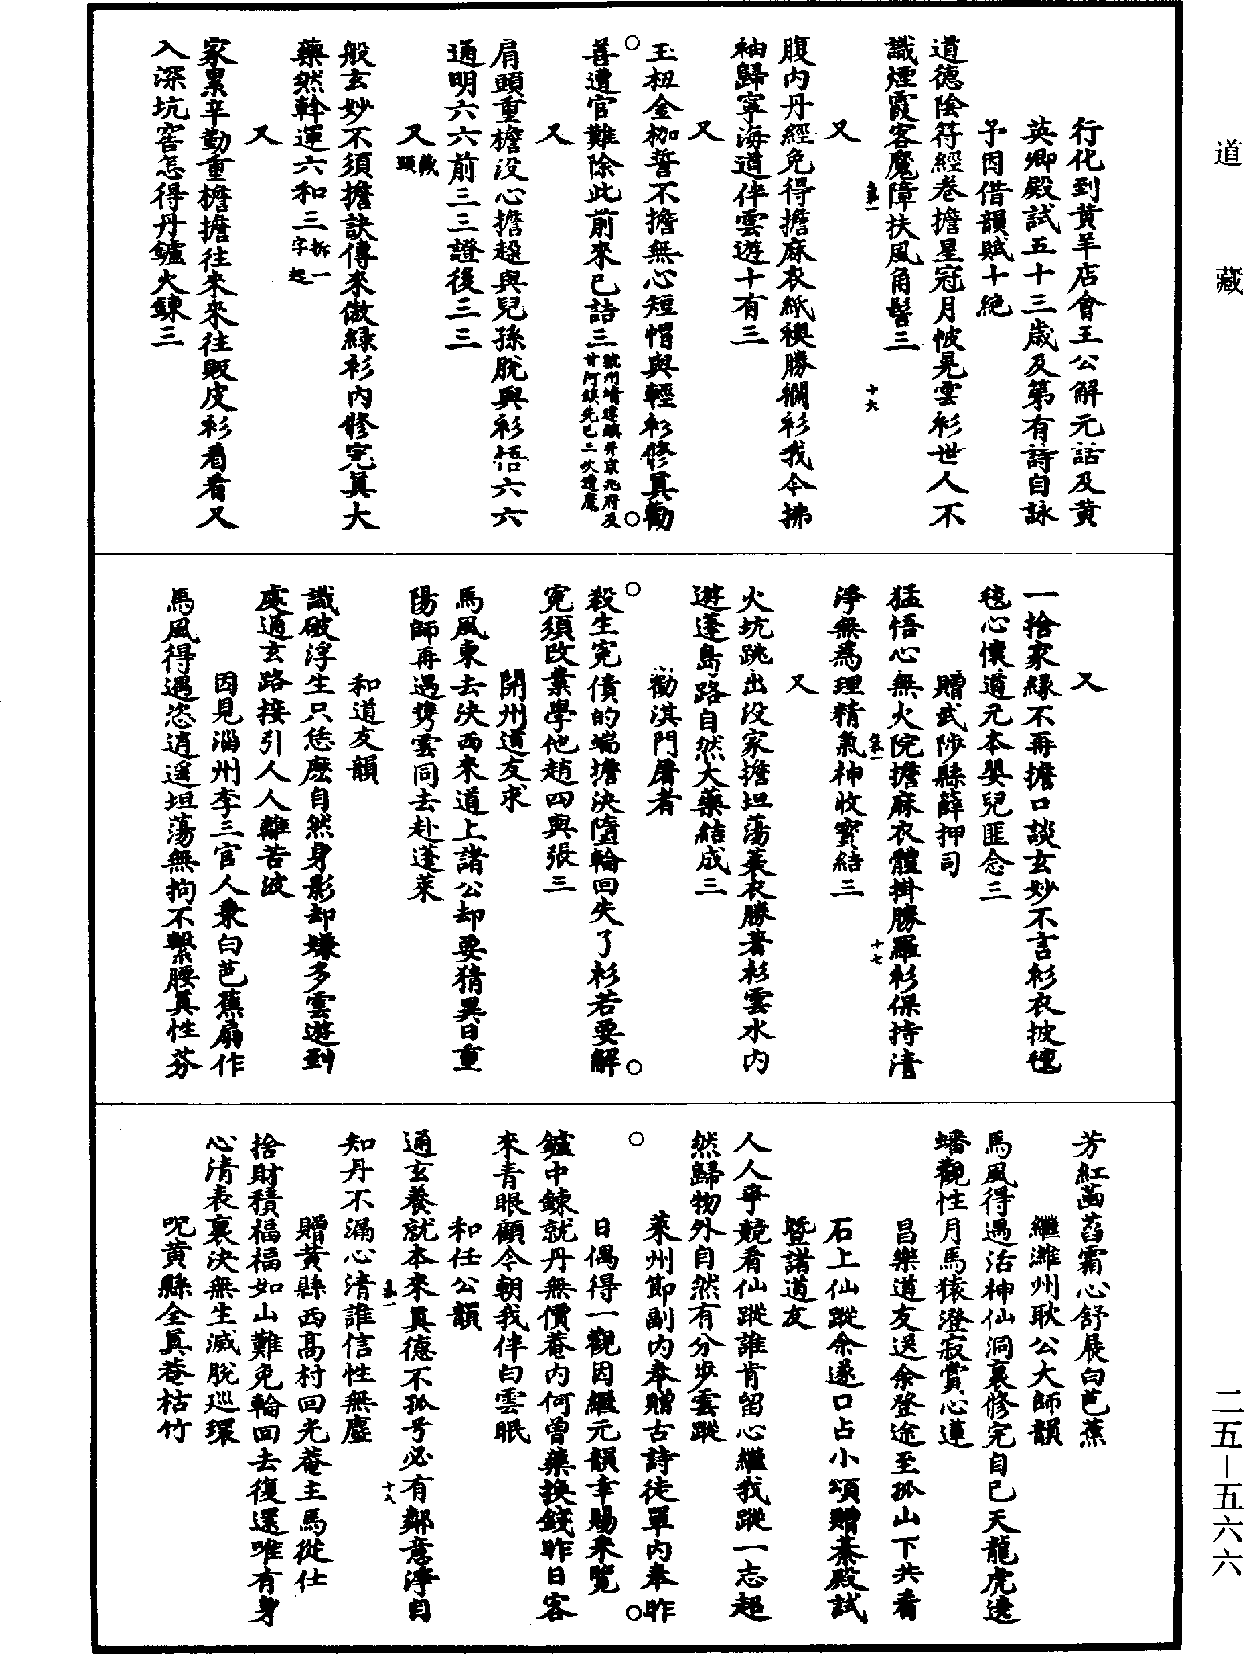 道藏
行化到黄羊店會王公解元話及黄
英卿殿試五十三歲及第有詩自詠
予因借韻賦十絶
道德陰符經卷擔星冠月帔晃雲衫世人不
識煙霞客魔障扶風角髻三
又
腹内丹經免得擔麻衣紙襖勝襴衫我今拂
袖歸寧海道伴雲遊十有三
又
玉杻金枷誓不擔無心短帽與輕衫修眞勸
善遭官難除此前來已詰三
又
肩頭重擔没心擔趍與兒孫脱與衫悟六六
通明六六前三三證後三三
又藏頭
般玄妙不須擔訣傳來傲緑衫内修完眞大
藥然幹運六和三拆一字起
又
家累辛勤重擔擔往來來往販皮衫看看又
入深坑窖怎得丹鑪火鍊三
十六
又
一捨家緣不再擔口談玄妙不言衫衣披氊
毯心懷道元本嬰兒匪念三
贈武陟縣薛押司
猛悟心無火院擔麻衣體掛勝羅衫保持清
淨無爲理精氣神收寳結三
十七
又
火坑跳出没家擔坦蕩蓑衣勝著衫雲水内
遊蓬島路自然大藥結成三
勸淇門屠者
殺生寃債的端擔決墮輪回失了衫若要解
寃須改業學他趙四與張三
開州道友求
馬風東去決西來道上諸公却要猜異日重
陽師再遇攜雲同去赴蓬萊
和道友韻
識破浮生只恁麽自然身影却嫌多雲遊到
處通玄路接引人人離苦波
因見淄州李三官人乗白芭蕉扇作
馬風得遇恣逍遥坦蕩無拘不繫腰眞性芬
芳紅菡萏霜心舒展白芭蕉
繼濰州耿公大師韻
馬風得遇活神仙洞裏修完自己天龍虎遶
蟠觀性月馬猿澄寂賞心蓮
昌樂道友送余登途至孤山下共看
石上仙蹤余遂口占小頌贈綦殿試
暨諸道友
人人爭競看仙蹤誰肯留心繼我蹤一志超
然歸物外自然有分步雲蹤
萊州節副内奉贈古詩徒單内奉昨
日偶得一觀因繼元韻幸賜采覽
鑪中鍊就丹無價菴内何曾藥換錢昨日客
來青眼顧今朝我伴白雲眠
和任公韻
通玄養就本來眞德不孤兮必有鄰意淨自
知丹不漏心清誰信性無塵
十八
贈黄縣西髙村回光菴主馬從仕
捨財積福福如山難免輪回去復還唯有身
心清表裏決無生滅脱巡環
呪黄縣全眞菴枯竹
二五—五六六